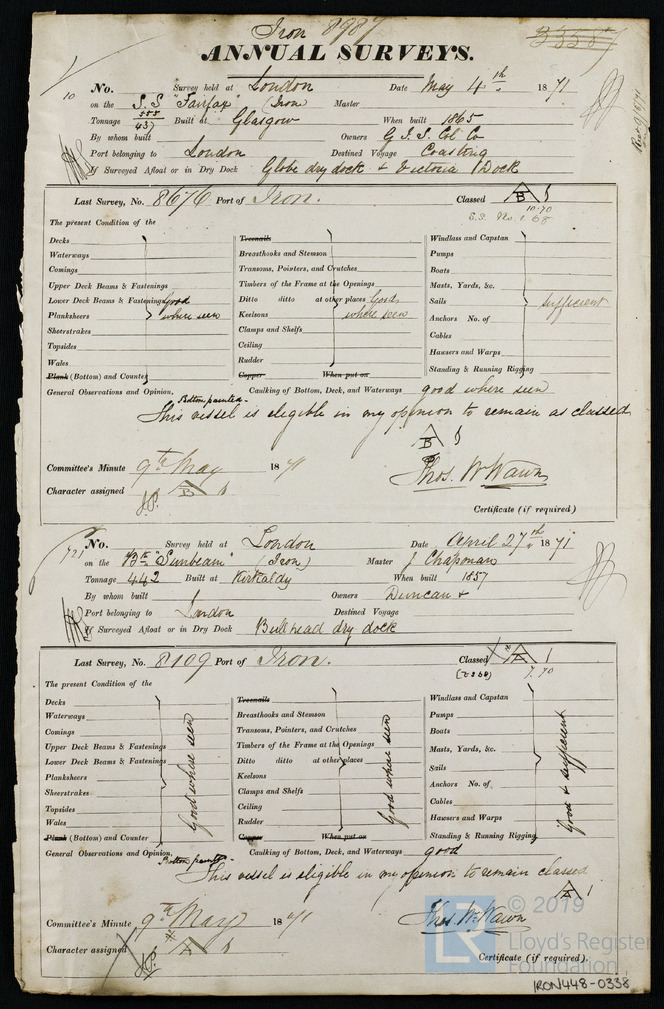 Iron 8987
33587
ANNUAL SURVEYS.
Rec 9/5/71
10 No. Survey held at London Date May 4th 1871
on the S.S "Fairfax (Iron) Master
Tonnage 555 437 Built at Glasgow When built 1865
By whom built Owners G. I. S. Col. Co
Port belonging to London Destined Voyage Coasting
If Surveyed Afloat or in Dry Dock Globe dry dock & Victoria Dock
Last Survey, No. 8676 Port of Iron. Classed A B 1
10.70
S.S. No. 1. 68
The present Condition of the
Decks
Waterways
Comings
Upper Deck Beams & Fastenings
Lower Deck Beams & Fastenings good
Planksheers where seen
Sheerstrakes
Topsides
Wales
Plank (Bottom) and Counter
Treenails
Breasthooks and Stemson
Transoms, Pointers, and Crutches
Timbers of the Frame at the Openings
Ditto ditto at other places Good
Keelsons where seen
Clamps and Shelfs
Ceiling
Rudder
Copper When put on
Windlass and Capstan
Pumps
Boats
Masts, Yards, &c.
Sails sufficient
Anchors No. of
Cables
Hawsers and Warps
Standing & Running Rigging
General Observations and Opinion, Caulking of Bottom, Deck, and Waterways good where seen
Bottom painted-
This vessel is eligible in my opinion to remain as classed
A B 1
Committee's Minute 9th May 1871
Thos. W Wawn
Character assigned A B 1
Certificate (if required)
721 No. Survey held at London Date April 27th 1871
on the Bk "Sunbeam" (Iron) Master J Chapman
Tonnage 442 Built at Kirkaldy When built 1857
By whom built Owners Duncan &
Port belonging to London Destined Voyage
If Surveyed Afloat or in Dry Dock Bullhead dry dock
Last Survey, No. 8109 Port of Iron. Classed A 1
7.70
The present Condition of the
Decks
Waterways
Comings
Upper Deck Beams & Fastenings
Lower Deck Beams & Fastenings
Planksheers
Sheerstrakes
Topsides
Wales
Plank (Bottom) and Counter
Good where seen
Treenails
Breasthooks and Stemson
Transoms, Pointers, and Crutches
Timbers of the Frame at the Openings
Ditto ditto at other places
Keelsons
Clamps and Shelfs
Ceiling
Rudder
Copper When put on
Good where seen
Windlass and Capstan
Pumps
Boats
Masts, Yards, &c.
Sails
Anchors No. of
Cables
Hawsers and Warps
Standing & Running Rigging
Good & sufficient
General Observations and Opinion, Caulking of Bottom, Deck, and Waterways good
Bottom painted-
This vessel is eligible in my opinion to remain classed
A 1
Committee's Minute 9th May 1871
Thos. W. Wawn
Character assigned A 1
Certificate (if required).
© 2019
LR Lloyd's Register
Foundation
IRON448-0338